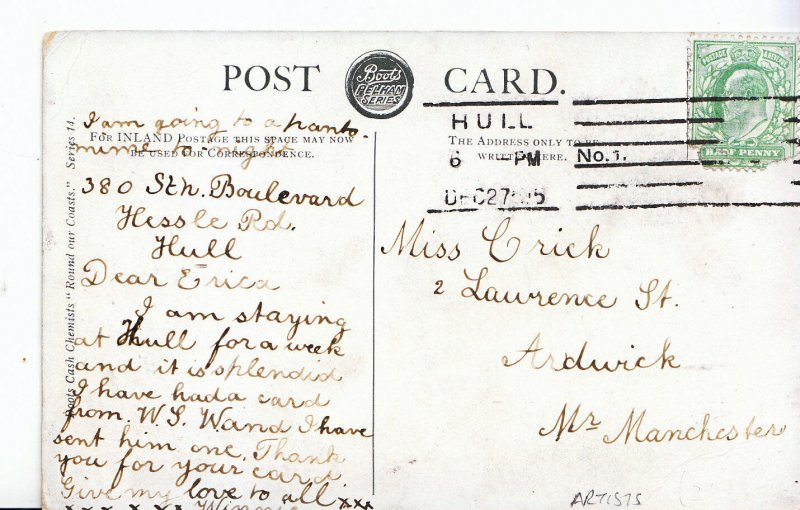 POST CARD.
Boots
PELHAM
SERIES
FOR INLAND POSTAGE THIS SPACE MAY NOW
BE USED FOR CORRESPONDENCE.
THE ADDRESS ONLY TO BE
WRITTEN HERE.
Boots Cash Chemists "Round our Coasts." Series 14.
I am going to a panto-
mime to-night
380 Sth. Boulevard
Hessle Rd.
Hull
Dear Erica
I am staying
at Hull for a week
and it is splendid
I have had a card
from W.S. Wand I have
sent him one. Thank
you for your card.
Give my love to all xxx
Winnie
HULL
6 PM No. 1.
DEC 27
POSTAGE
HALF PENNY
Miss Crick
2 Lawrence St.
Ardwick
Mr Manchester
ARTISTS